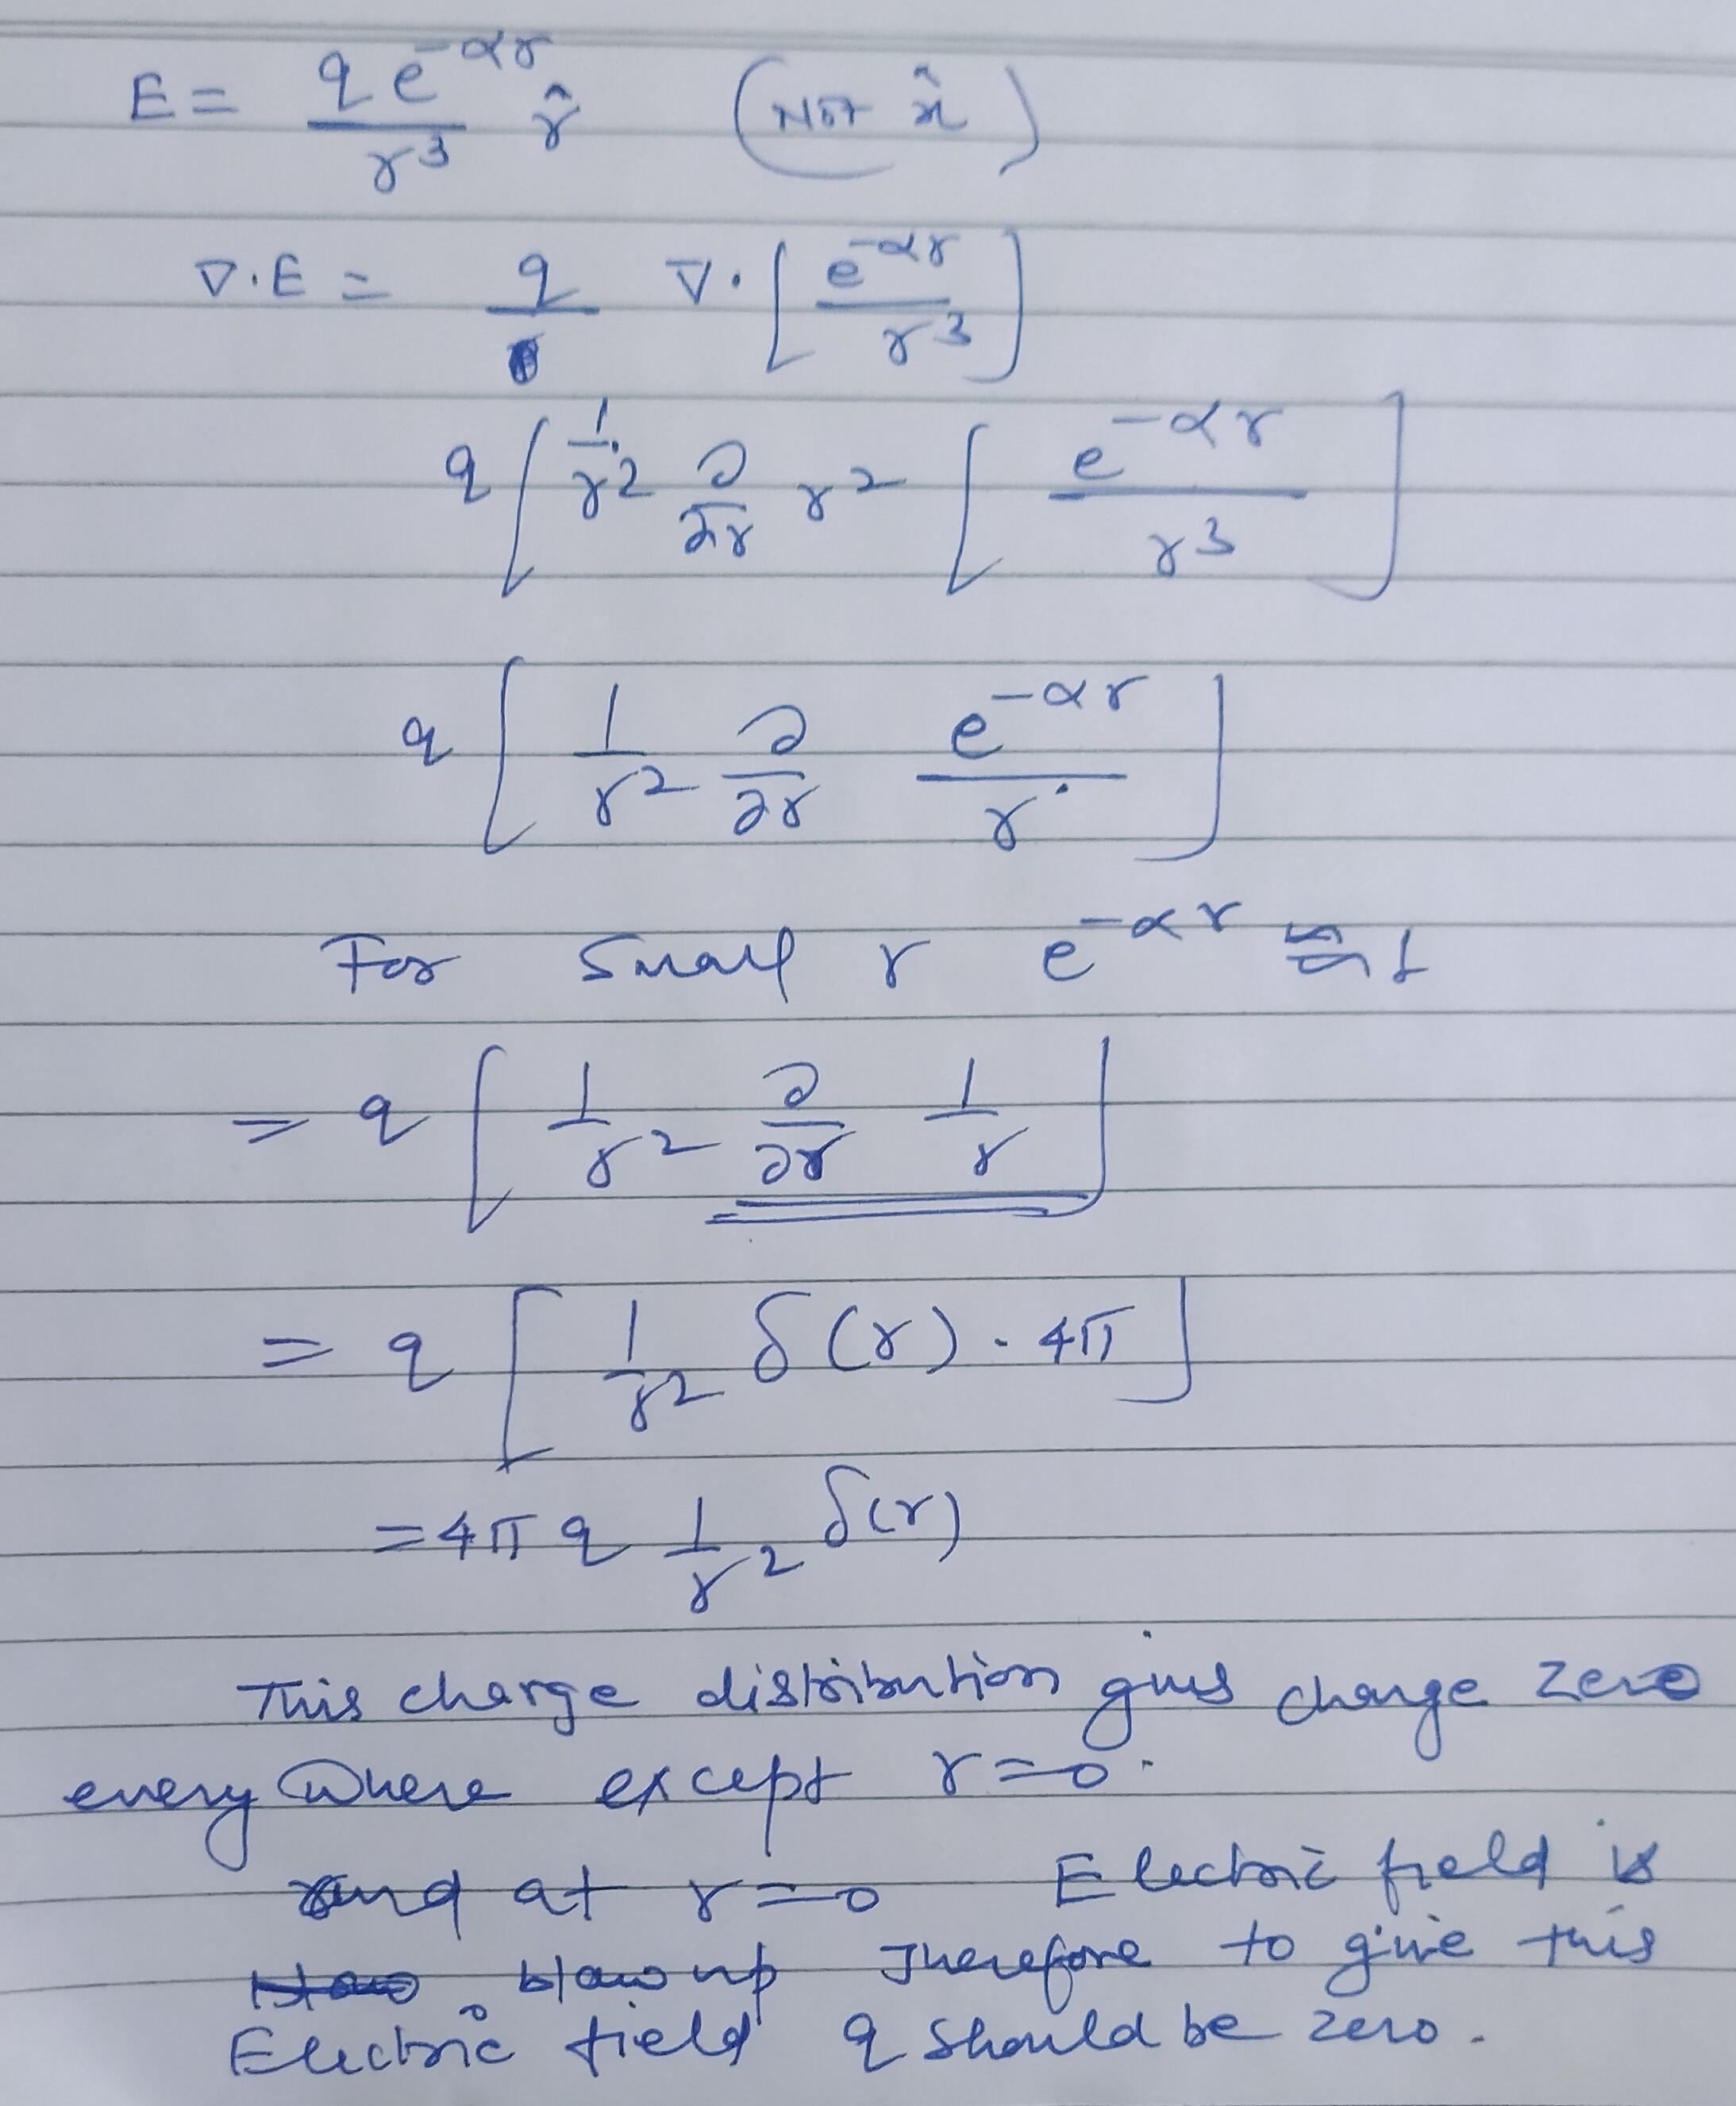 E = q e^{-αr} / r^3 r̂ (NOT r̂)
∇.E = q ∇. [ e^{-αr} / r^3 ]
q [ 1/r^2 ∂/∂r r^2 [ e^{-αr} / r^3 ]
q [ 1/r^2 ∂/∂r e^{-αr} / r ]
For small r e^{-αr} ≈ 1
= q [ 1/r^2 ∂/∂r 1/r ]
= q [ 1/r^2 δ(r) . 4π ]
= 4π q 1/r^2 δ(r)
This charge distribution gives charge zero
every where except r=0.
and at r=0 Electric field is
blow up Therefore to give this
Electric field q should be zero.